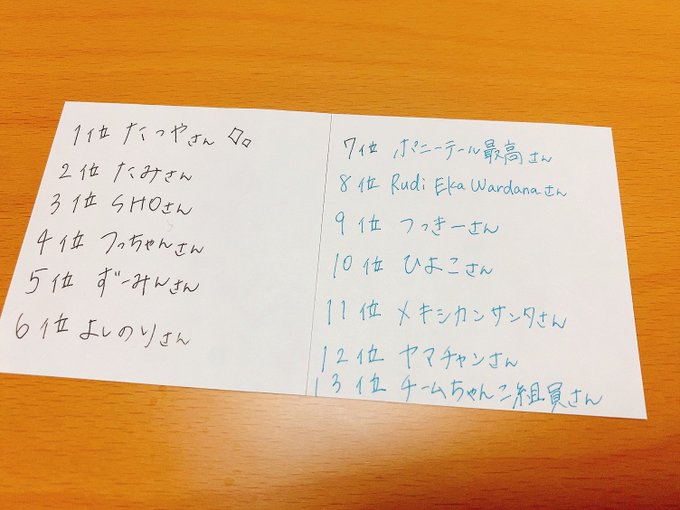 1位 たつやさん
2位 たみさん
3位 SHOさん
4位 つっちゃんさん
5位 ずーみんさん
6位 よしのりさん
7位 ポニーテール最高さん
8位 Rudi Eka Wardanaさん
9位 つっきーさん
10位 ひよこさん
11位 メキシカンサンタさん
12位 ヤマチャンさん
13位 チームちゃんこ組員さん